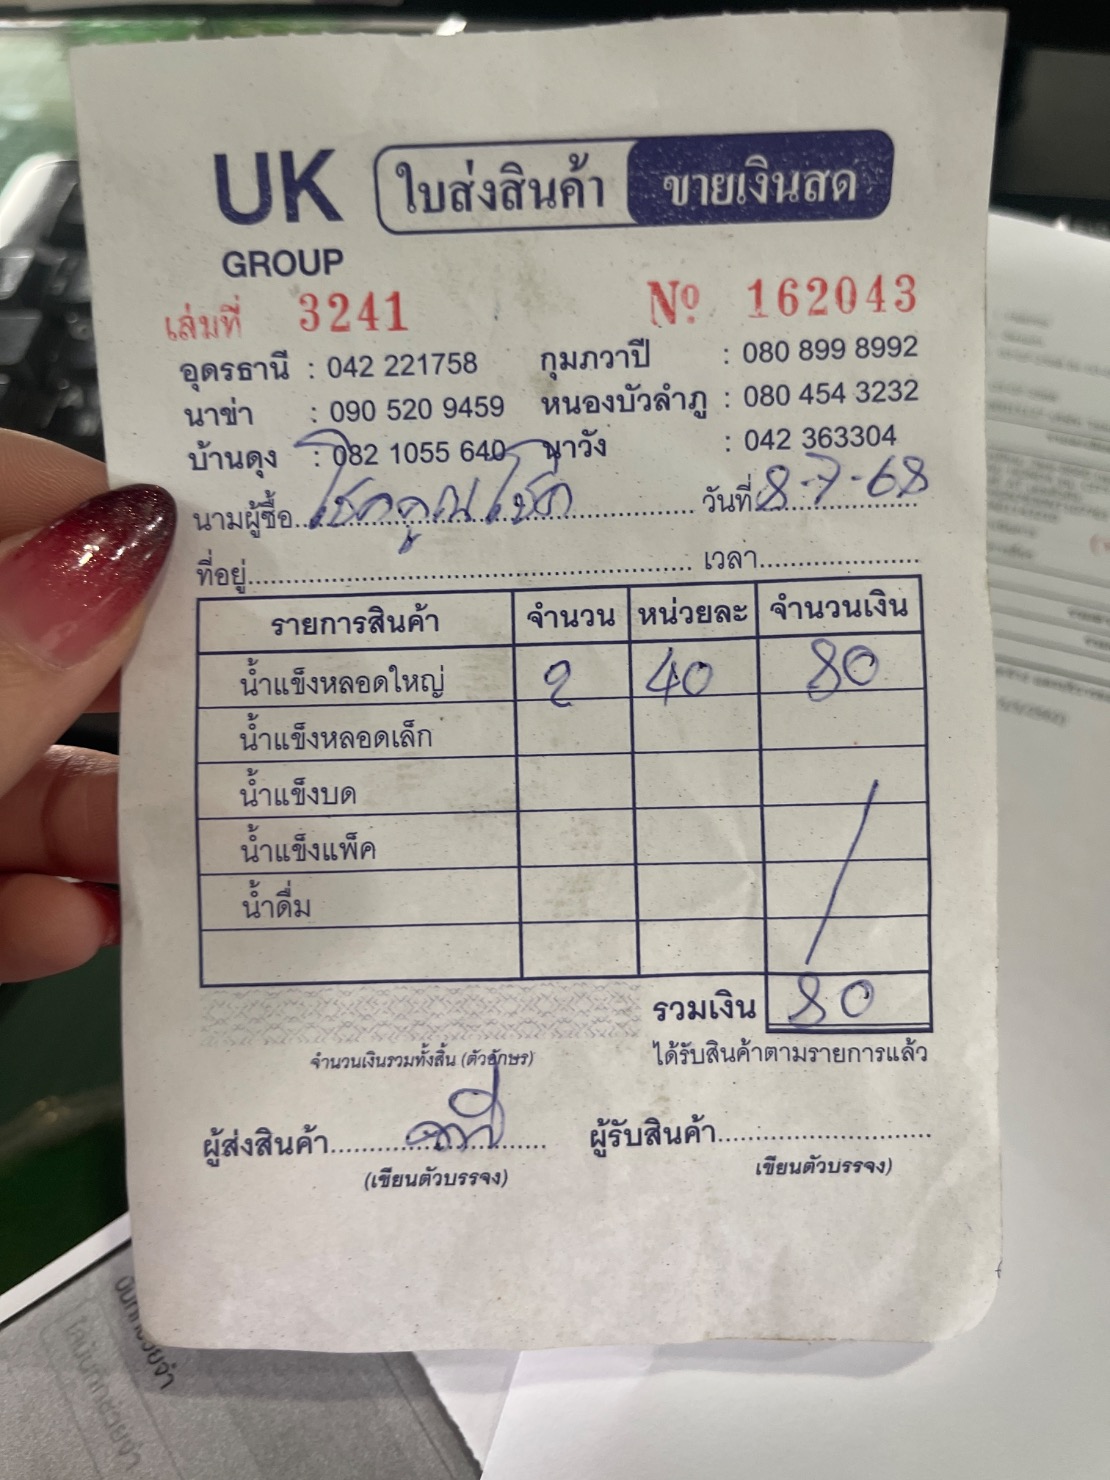 UK GROUP ใบส่งสินค้า ขายเงินสด
เล่มที่ 3241 Nº 162043
อุดรธานี : 042 221758 กุมภวาปี : 080 899 8992
นาข่า : 090 520 9459 หนองบัวลำภู : 080 454 3232
บ้านดุง : 082 1055 640 นาวัง : 042 363304
นามผู้ซื้อ โชคคูณโชค วันที่ 8-7-68
ที่อยู่ เวลา
รายการสินค้า จำนวน หน่วยละ จำนวนเงิน
น้ำแข็งหลอดใหญ่ 2 40 80
น้ำแข็งหลอดเล็ก
น้ำแข็งบด
น้ำแข็งแพ็ค
น้ำดื่ม
รวมเงิน 80
จำนวนเงินรวมทั้งสิ้น (ตัวอักษร) ได้รับสินค้าตามรายการแล้ว
ผู้ส่งสินค้า ผู้รับสินค้า
(เขียนตัวบรรจง) เขียนตัวบรรจง)